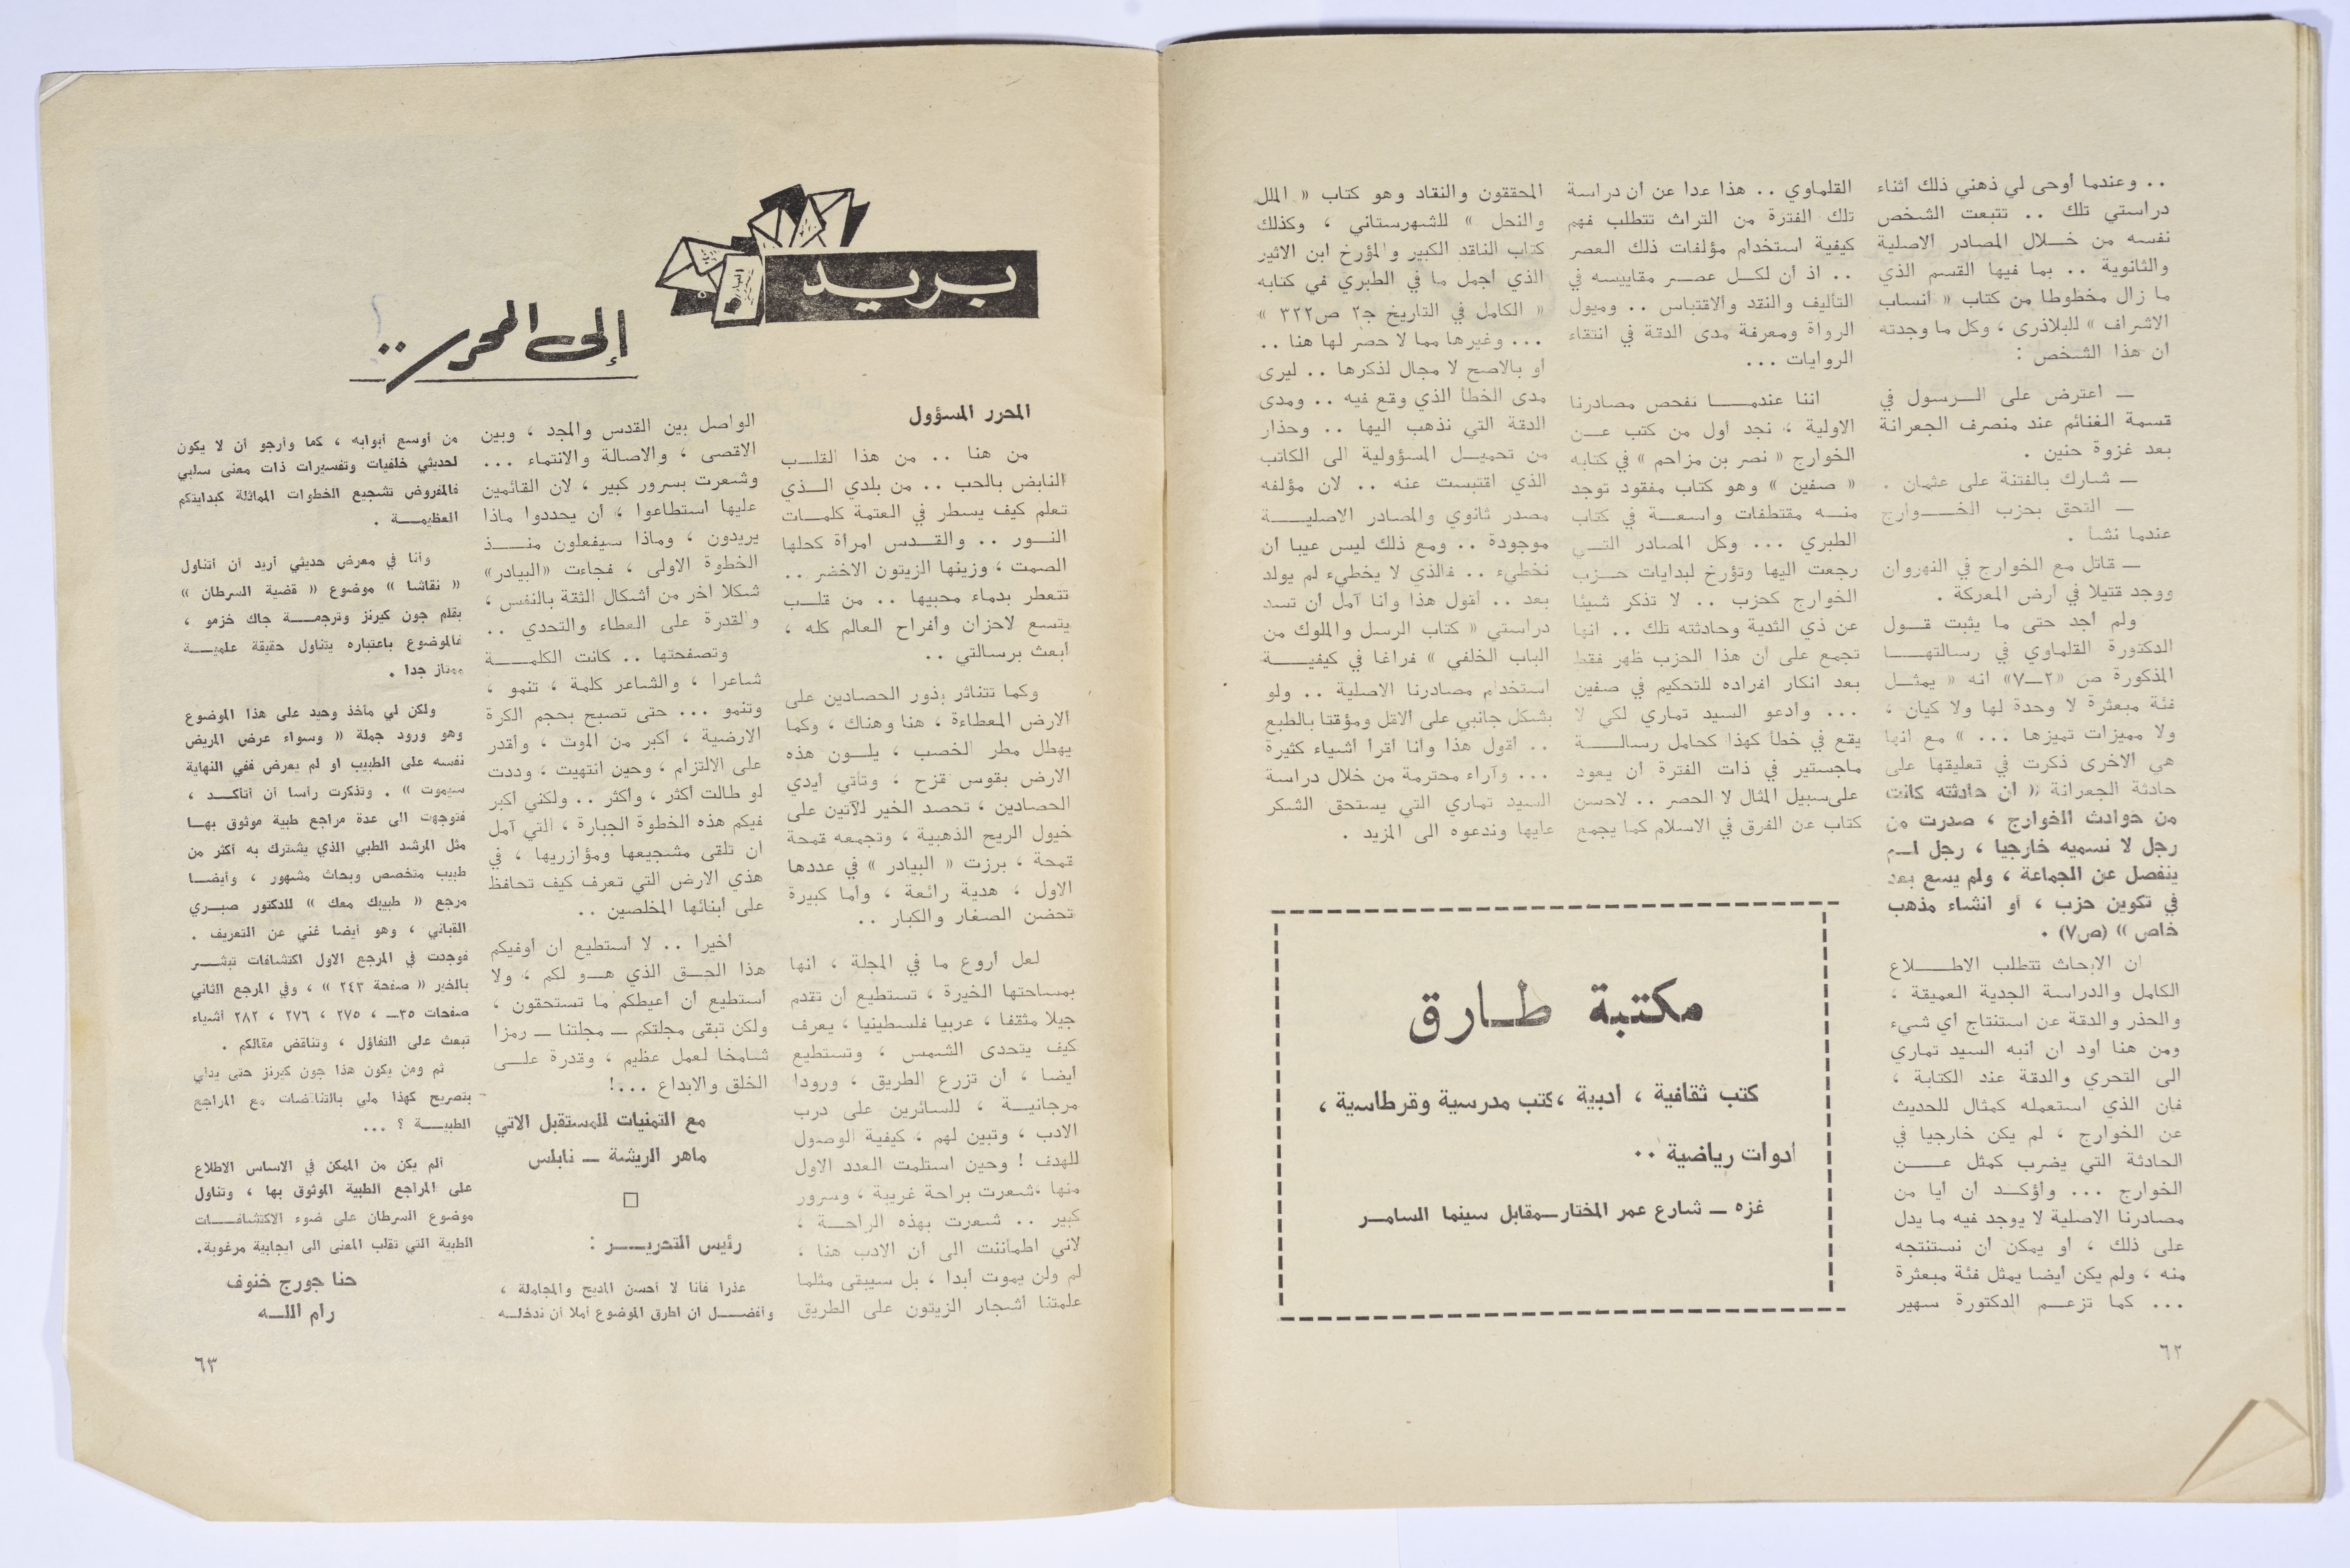 .. وعندما أوحى لي ذهني ذلك أثناء
دراستي تلك .. تتبعت الشخص
نفسه من خـــلال المصادر الاصلية
والثانوية .. بما فيها القسم الذي
ما زال مخطوطا من كتاب « انساب
الاشراف » للبلاذرى ، وكل ما وجدته
ان هذا الشخص :
ــ اعترض على الـــرسول في
قسمة الغنائم عند منصرف الجعرانة
بعد غزوة حنين .
ــ شارك بالفتنة على عثمان .
ــ التحق بحزب الخـــوارج
عندما نشأ .
ــ قاتل مع الخوارج في النهروان
ووجد قتيلا في أرض المعركة .
ولم أجد حتى ما يثبت قـــول
الدكتورة القلماوي في رسالتهـــا
المذكورة ص «٢ــ٧» انه « يمثـــل
فئة مبعثرة لا وحدة لها ولا كيان ،
ولا مميزات تميزها ... » مع انها
هي الاخرى ذكرت في تعليقها على
حادثة الجعرانة « ان حادثته كانت
من حوادث الخوارج ، صدرت من
رجل لا نسميه خارجيا ، رجل لـــم
ينفصل عن الجماعة ، ولم يسع بعد
في تكوين حزب ، أو انشاء مذهب
خاص » (ص٧) .
ان الابحاث تتطلب الاطـــلاع
الكامل والدراسة الجدية العميقة ،
والحذر والدقة عن استنتاج أي شيء
ومن هنا أود ان أنبه السيد تماري
الى التحري والدقة عند الكتابة ،
فان الذي استعمله كمثال للحديث
عن الخوارج ، لم يكن خارجيا في
الحادثة التي يضرب كمثل عـــن
الخوارج ... وأؤكـــد أن أيا من
مصادرنا الاصلية لا يوجد فيه ما يدل
على ذلك ، أو يمكن ان نستنتجه
منه ، ولم يكن أيضا يمثل فئة مبعثرة
... كما تزعـــم الدكتورة سهير
القلماوي .. هذا عدا عن أن دراسة
تلك الفترة من التراث تتطلب فهم
كيفية استخدام مؤلفات ذلك العصر
.. اذ أن لكـــل عصـــر مقاييسه في
التأليف والنقد والاقتباس .. وميول
الرواة ومعرفة مدى الدقة في انتقاء
الروايات ...
اننا عندمـــا نفحص مصادرنا
الاولية ، نجد أول من كتب عـــن
الخوارج « نصر بن مزاحم » في كتابه
« صفين » وهو كتاب مفقود توجد
منـــه مقتطفات واسعـــة في كتاب
الطبري ... وكل المصادر التـــي
رجعت اليها وتؤرخ لبدايات حـــزب
الخوارج كحزب .. لا تذكر شيئا
عن ذي الثدية وحادثته تلك .. انها
تجمع على أن هذا الحزب ظهر فقط
بعد انكار افراده للتحكيم في صفين
... وأدعو السيد تماري لكي لا
يقع في خطأ كهذا كحامل رسالـــة
ماجستير في ذات الفترة أن يعود
على سبيل المثال لا الحصر .. لاحسن
كتاب عن الفرق في الاسلام كما يجمع
المحققون والنقاد وهو كتاب « الملل
والنحل » للشهرستاني ، وكذلك
كتاب الناقد الكبير والمؤرخ ابن الاثير
الذي أجمل ما في الطبري في كتابه
« الكامل في التاريخ ج٢ ص٣٢٢ »
... وغيرها مما لا حصر لها هنا ..
أو بالاصح لا مجال لذكرها .. ليرى
مدى الخطأ الذي وقع فيه .. ومدى
الدقة التي نذهب اليها .. وحذار
من تحميـــل المسؤولية الى الكاتب
الذي اقتبست عنه .. لان مؤلفه
مصدر ثانوي والمصادر الاصليـــة
موجودة .. ومع ذلك ليس عيبا ان
نخطيء .. فالذي لا يخطيء لم يولد
بعد .. أقول هذا وأنا آمل أن تسد
دراستي « كتاب الرسل والملوك من
الباب الخلفي » فراغا في كيفيـــة
استخدام مصادرنا الاصلية .. ولو
بشكل جانبي على الاقل ومؤقتا بالطبع
.. أقول هذا وأنا أقرأ أشياء كثيرة
... وآراء محترمة من خلال دراسة
السيد تماري التي يستحق الشكر
عليها وندعوه الى المزيد .
مكتبة طـارق
كتب ثقافية ، ادبية ،كتب مدرسية وقرطاسية ،
أدوات رياضية ..
غزه ــ شارع عمر المختارــمقابل سينما السامـــر
٦٢
بريد
إلى المحرر ..
المحرر المسؤول
من هنا .. من هذا القلـــب
النابض بالحب .. من بلدي الـــذي
تعلم كيف يسطر في العتمة كلمـــات
النـــور .. والقـــدس امرأة كحلها
الصمت ، وزينها الزيتون الاخضر ..
تتعطر بدماء محبيها .. من قلـــب
يتسع لاحزان وأفراح العالم كله ،
أبعث برسالتي ..
وكما تتناثر بذور الحصادين على
الارض المعطاءة ، هنا وهناك ، وكما
يهطل مطر الخصب ، يلـــون هذه
الارض بقوس قزح ، وتأتي أيدي
الحصادين ، تحصد الخير للآتين على
خيول الريح الذهبية ، وتجمعه قمحة
قمحة ، برزت « البيادر » في عددها
الاول ، هدية رائعة ، وأما كبيرة
تحضن الصغار والكبار ..
لعل أروع ما في المجلة ، انها
بمساحتها الخيرة ، تستطيع أن تقدم
جيلا مثقفا ، عربيا فلسطينيا ، يعرف
كيف يتحدى الشمس ، وتستطيع
أيضا ، أن تزرع الطريق ، ورودا
مرجانيـــة ، للسائرين على درب
الادب ، وتبين لهم ، كيفية الوصول
للهدف ! وحين استلمت العدد الاول
منها ،شعرت براحة غريبة ، وسرور
كبير .. شعرت بهذه الراحـــة ،
لاني اطمأننت الى أن الادب هنا ،
لم ولن يموت أبدا ، بل سيبقى مثلما
علمتنا أشجار الزيتون على الطريق
الواصل بين القدس والمجد ، وبين
الاقصى ، والاصالة والانتماء ...
وشعرت بسرور كبير ، لان القائمين
عليها استطاعوا ، أن يحددوا ماذا
يريدون ، وماذا سيفعلون منـــذ
الخطوة الاولى ، فجاءت «البيادر»
شكلا آخر من أشكال الثقة بالنفس ،
والقدرة على العطاء والتحدي ..
وتصفحتها .. كانت الكلمـــة
شاعرا ، والشاعر كلمة ، تنمو ،
وتنمو ... حتى تصبح بحجم الكرة
الارضية ، أكبر من الموت ، وأقدر
على الالتزام ، وحين انتهيت ، وددت
لو طالت أكثر ، وأكثر .. ولكني أكبر
فيكم هذه الخطوة الجبارة ، التي آمل
ان تلقى مشجيعها ومؤازريها ، في
هذي الارض التي تعرف كيف تحافظ
على أبنائها المخلصين ..
أخيرا .. لا أستطيع ان أوفيكم
هذا الحـــق الذي هـــو لكم ، ولا
أستطيع أن أعيطكم ما تستحقون ،
ولكن تبقى مجلتكم ــ مجلتنا ــ رمزا
شامخا لعمل عظيم ، وقدرة علـــى
الخلق والابداع ...!
مع التمنيات للمستقبل الاتي
ماهر الريشة ــ نابلس
رئيس التحريـــر :
عذرا فأنا لا أحسن المديح والمجاملة ،
وأفضـــل ان اطرق الموضوع أملا أن ندخلـــه
من أوسع أبوابه ، كما وأرجو أن لا يكون
لحديثي خلفيات وتفسيرات ذات معنى سلبي
فالمفروض تشجيع الخطوات المماثلة كبدايتكم
العظيمـــة .
وأنا في معرض حديثي أريد أن أتناول
« نقاشا » موضوع « قضية السرطان »
بقلم جون كيرنز وترجمـــة جاك خزمو ،
فالموضوع باعتباره يتناول حقيقة علميـــة
ممتاز جدا .
ولكن لي مأخذ وحيد على هذا الموضوع
وهو ورود جملة « وسواء عرض المريض
نفسه على الطبيب او لم يعرض ففي النهاية
سيموت » . وتذكرت رأسا أن أتأكـــد ،
فتوجهت الى عدة مراجع طبية موثوق بهـــا
مثل المرشد الطبي الذي يشترك به أكثر من
طبيب متخصص وبحاث مشهور ، وأيضـــا
مرجع « طبيبك معك » للدكتور صبـــري
القباني ، وهو أيضا غني عن التعريف .
فوجدت في المرجع الاول اكتشافات تبشـــر
بالخير « صفحة ٢٤٣ » ، وفي المرجع الثاني
صفحات ٣٥ــ ، ٢٧٥ ، ٢٧٦ ، ٢٨٢ أشياء
تبعث على التفاؤل ، وتناقض مقالكم .
ثم ومن يكون هذا جون كيرنز حتى يدلي
بتصريح كهذا ملي بالتناقضات مع المراجع
الطبيـــة ؟ ...
ألم يكن من الممكن في الاساس الاطلاع
على المراجع الطبية الموثوق بها ، وتناول
موضوع السرطان على ضوء الاكتشافـــات
الطبية التي تقلب المعنى الى ايجابية مرغوبة.
حنا جورج خنوف
رام اللـــه
٦٣